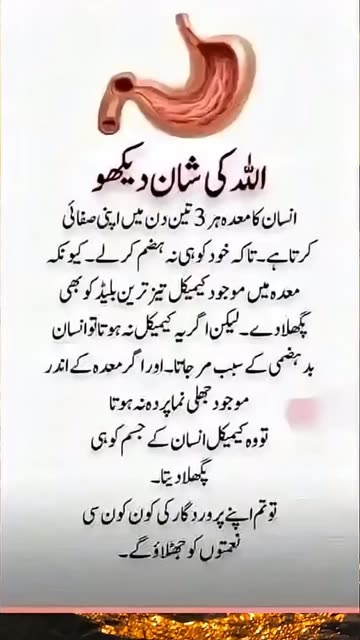 اللہ کی شان دیکھو
انسان کا معدہ ہر 3 تین دن میں اپنی صفائی
کرتا ہے۔ تاکہ خود کو ہی نہ ہضم کر لے۔ کیونکہ
معدہ میں موجود کیمیکل تیز ترین بلیڈ کو بھی
پگھلا دے۔ لیکن اگر یہ کیمیکل نہ ہوتا تو انسان
بد ہضمی کے سبب مر جاتا۔ اور اگر معدہ کے اندر
موجود جھلی نما پردہ نہ ہوتا
تو وہ کیمیکل انسان کے جسم کو ہی
پگھلا دیتا۔
تو تم اپنے پروردگار کی کون کون سی
نعمتوں کو جھٹلاؤ گے۔